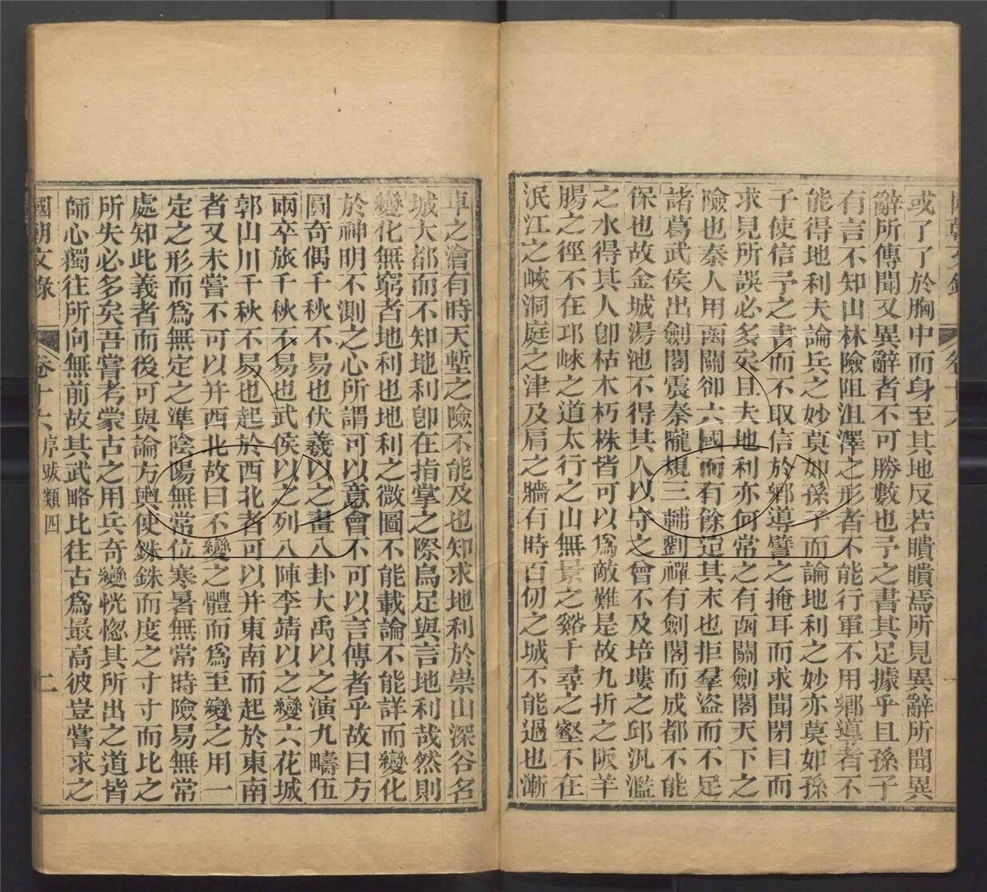 或了了於胸中而身至其地反若瞶瞶焉所見異辭所聞異
辭所傳聞又異辭者不可勝數也予之書其足據乎且孫子
有言不知山林險阻沮澤之形者不能行軍不用鄉導者不
能得地利夫論兵之妙莫如孫子而論地利之妙亦莫如孫
子使信予之書而不取信於鄉導譬之掩耳而求聞閉目而
求見所誤必多矣且夫地利亦何常之有函關劍閣天下之
險也秦人用函關卻六國而有餘迨其末也拒羣盜而不足
諸葛武侯出劍閣震秦隴規三輔劉禪有劍閣而成都不能
保也故金城湯池不得其人以守之曾不及培塿之邱汎濫
之水得其人卽枯木朽株皆可以爲敵難是故九折之阪羊
腸之徑不在邛崍之道太行之山無景之谿千尋之壑不在
泯江之峽洞庭之津及肩之牆有時百仞之城不能過也漸
車之澮有時天塹之險不能及也知求地利於崇山深谷名
城大都而不知地利卽在指掌之際烏足與言地利哉然則
變化無窮者地利也地利之微圖不能載論不能詳而變化
於神明不測之心所謂可以意會不可以言傳者乎故曰方
圓奇偶千秋不易也伏羲以之畫八卦大禹以之演九疇伍
兩卒旅千秋不易也武侯以之列八陣李靖以之變六花城
郭山川千秋不易也起於西北者可以并東南而起於東南
者又未嘗不可以并西北故曰不變之體而爲至變之用一
定之形而爲無定之準陰陽無常位寒暑無常時險易無常
處知此義者而後可與論方輿使銖銖而度之寸寸而比之
所失必多矣吾嘗考蒙古之用兵奇變恍惚其所出之道皆
師心獨往所向無前故其武略比往古爲最高彼豈嘗求之
國朝文錄 卷十六 序跋類四 二